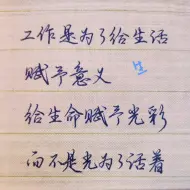 工作是为了给生活
赋予意义
给生命赋予光彩
而不是光为了活着